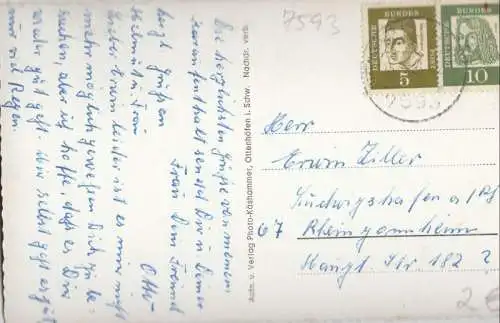 Die herzlichsten Grüße von meinem
Kuraufenthalt sendet Dir u. Deiner
Frau Dein Freund
Otto.
Lieber Erwin leider ist es mir nicht
mehr möglich gewesen Dich zu be-
suchen, aber ich hoffe, daß es Dir
wieder gut geht. Mir selbst geht es gut
nur viel Regen.
herzl. Grüßen
Helmut u. Frau
Aufn. u. Verlag Photo-Käshammer, Ottenhöfen i. Schw. Nachdr. verb.
7593
DEUTSCHE BUNDESPOST
5
DEUTSCHE BUNDESPOST
10
7593
Herr
Erwin Ziller
Ludwigshafen a/Rh
67 Rheingönheim
Haupt Str 182
2